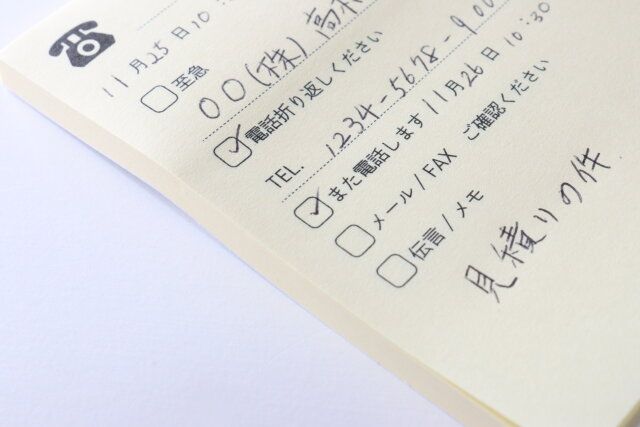 11月25日10:
○○(株) 高木
□ 至急
☑ 電話折り返しください
TEL. 1234-5678-900
☑ また電話します 11月26日 10:30
□ メール / FAX ご確認ください
□ 伝言 / メモ
見積りの件